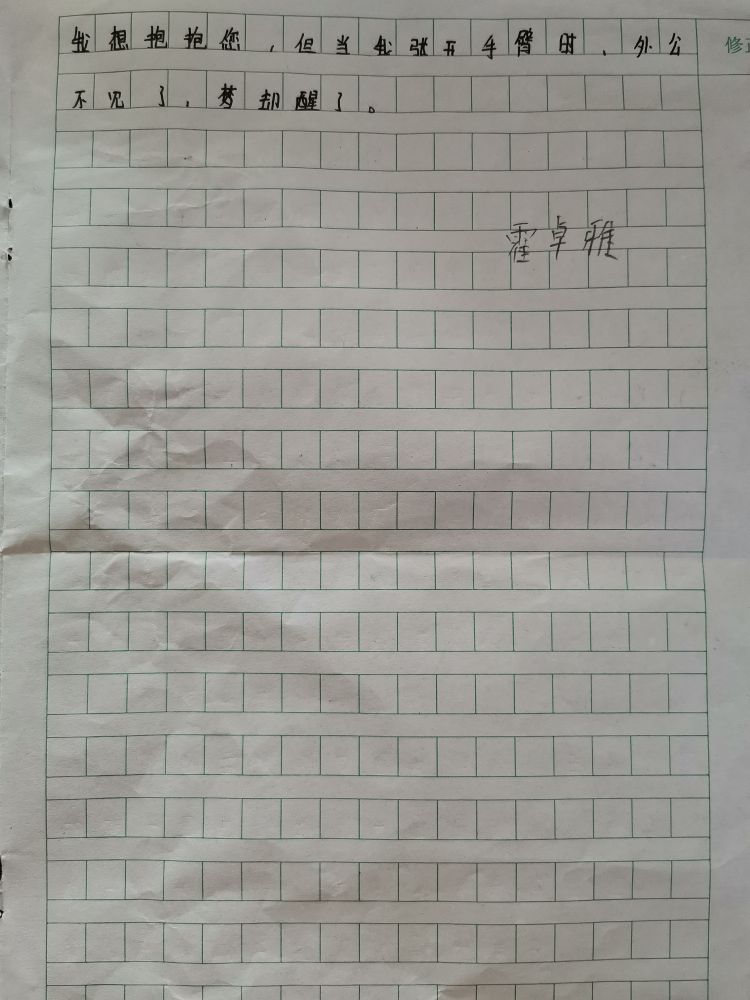 我想抱抱您，但当我张开手臂时，外公
不见了，梦却醒了。
霍卓雅